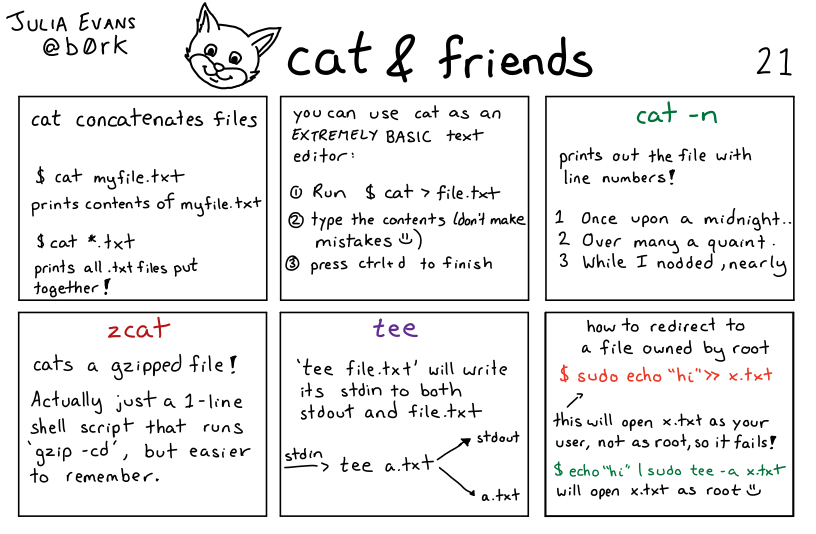 JULIA EVANS
@b0rk
cat & friends
21
cat concatenates files
$ cat myfile.txt
prints contents of myfile.txt
$ cat *.txt
prints all .txt files put
together!
you can use cat as an
EXTREMELY BASIC text
editor:
① Run $ cat > file.txt
② type the contents (don't make
mistakes ☺)
③ press ctrl+d to finish
cat -n
prints out the file with
line numbers!
1 Once upon a midnight..
2 Over many a quaint.
3 While I nodded, nearly
zcat
cats a gzipped file!
Actually just a 1-line
shell script that runs
`gzip -cd`, but easier
to remember.
tee
'tee file.txt' will write
its stdin to both
stdout and file.txt
stdin
tee a.txt
stdout
a.txt
how to redirect to
a file owned by root
$ sudo echo "hi" >> x.txt
this will open x.txt as your
user, not as root, so it fails!
$ echo "hi" | sudo tee -a x.txt
will open x.txt as root ☺